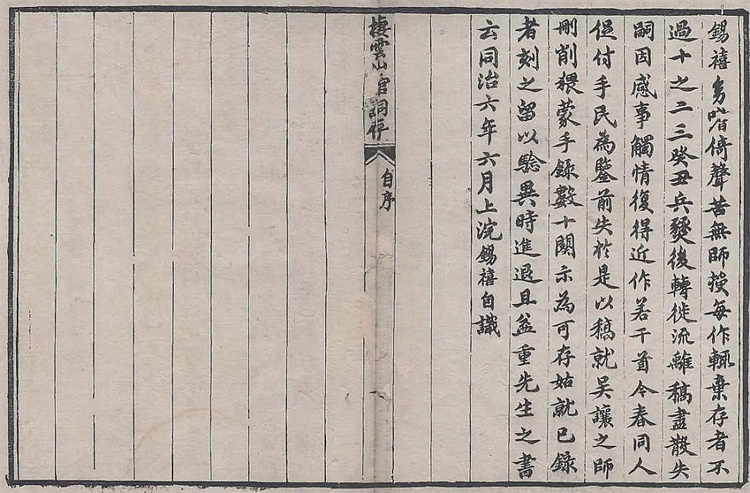 錫禧多嗜倚聲苦無師授每作輒棄存者不
過十之二三癸丑兵燹後轉徙流離稿盡散失
嗣因感事觸情復得近作若干首今春同人
促付手民為鑒前失於是以稿就吳讓之師
刪削猥蒙手錄數十闋示為可存姑就已錄
者刻之留以驗異時進退且益重先生之書
云同治六年六月上浣錫禧自識
棲雲山館詞存
自序